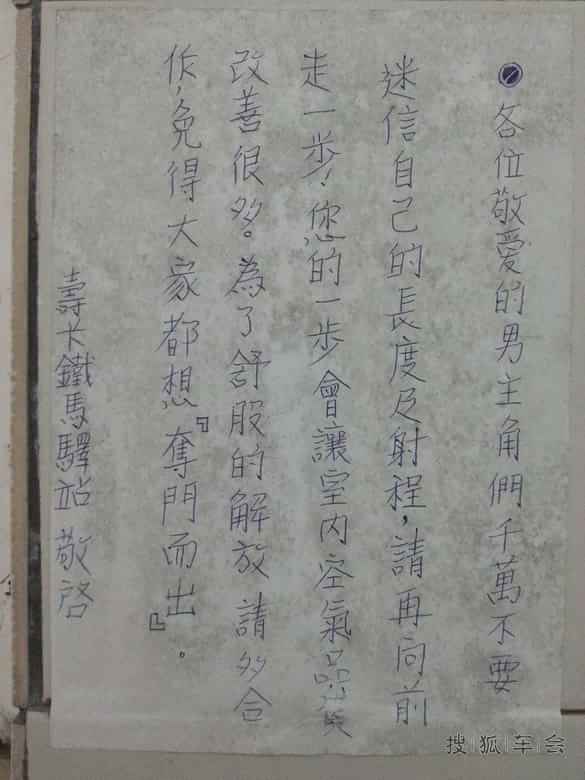 各位敬愛的男主角們千萬不要
迷信自己的長度及射程，請再向前
走一步！您的一步會讓室內空氣品質
改善很多。為了舒服的解放 請多合
作，免得大家都想『奪門而出』。
壽卡鐵馬驛站 敬啓
搜狐车会